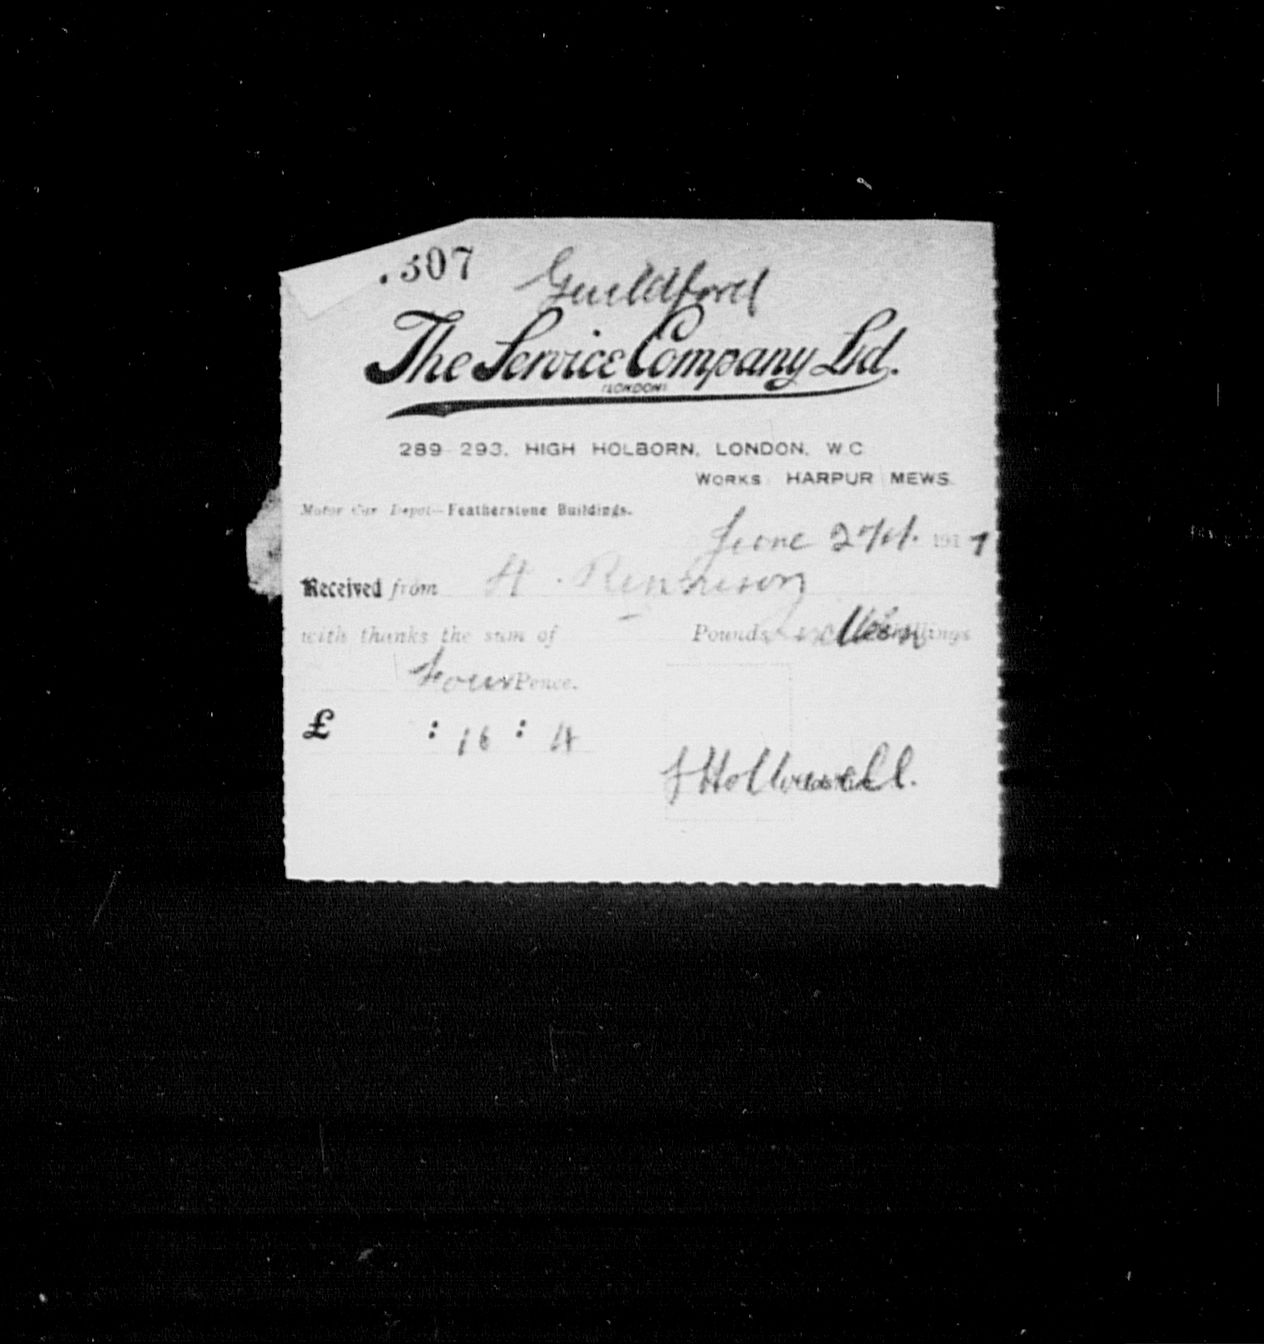 .507
Guildford
The Service Company Ltd.
(LONDON)
289-293, HIGH HOLBORN, LONDON, W.C.
WORKS HARPUR MEWS.
Motor Car Depot—Featherstone Buildings.
June 27th. 1917
Received from H. Rennison
with thanks the sum of — Pounds Sixteen Shillings
Four Pence.
£ : 16 : 4